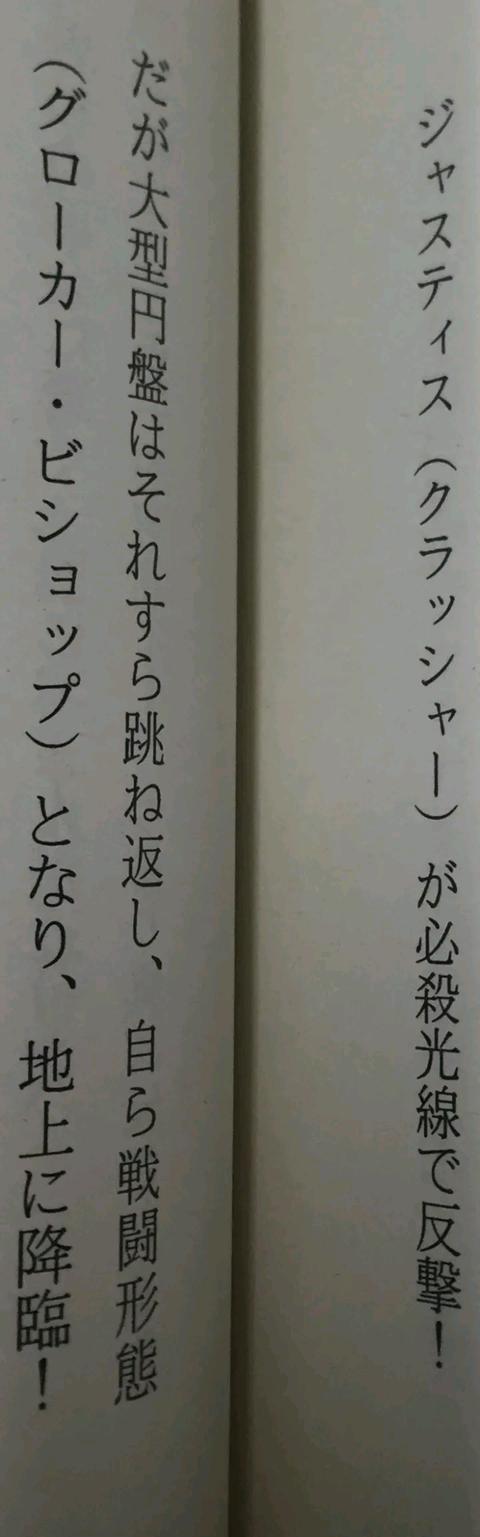 ジャスティス（クラッシャー）が必殺光線で反撃！
だが大型円盤はそれすら跳ね返し、自ら戦闘形態
（グローカー・ビショップ）となり、地上に降臨！